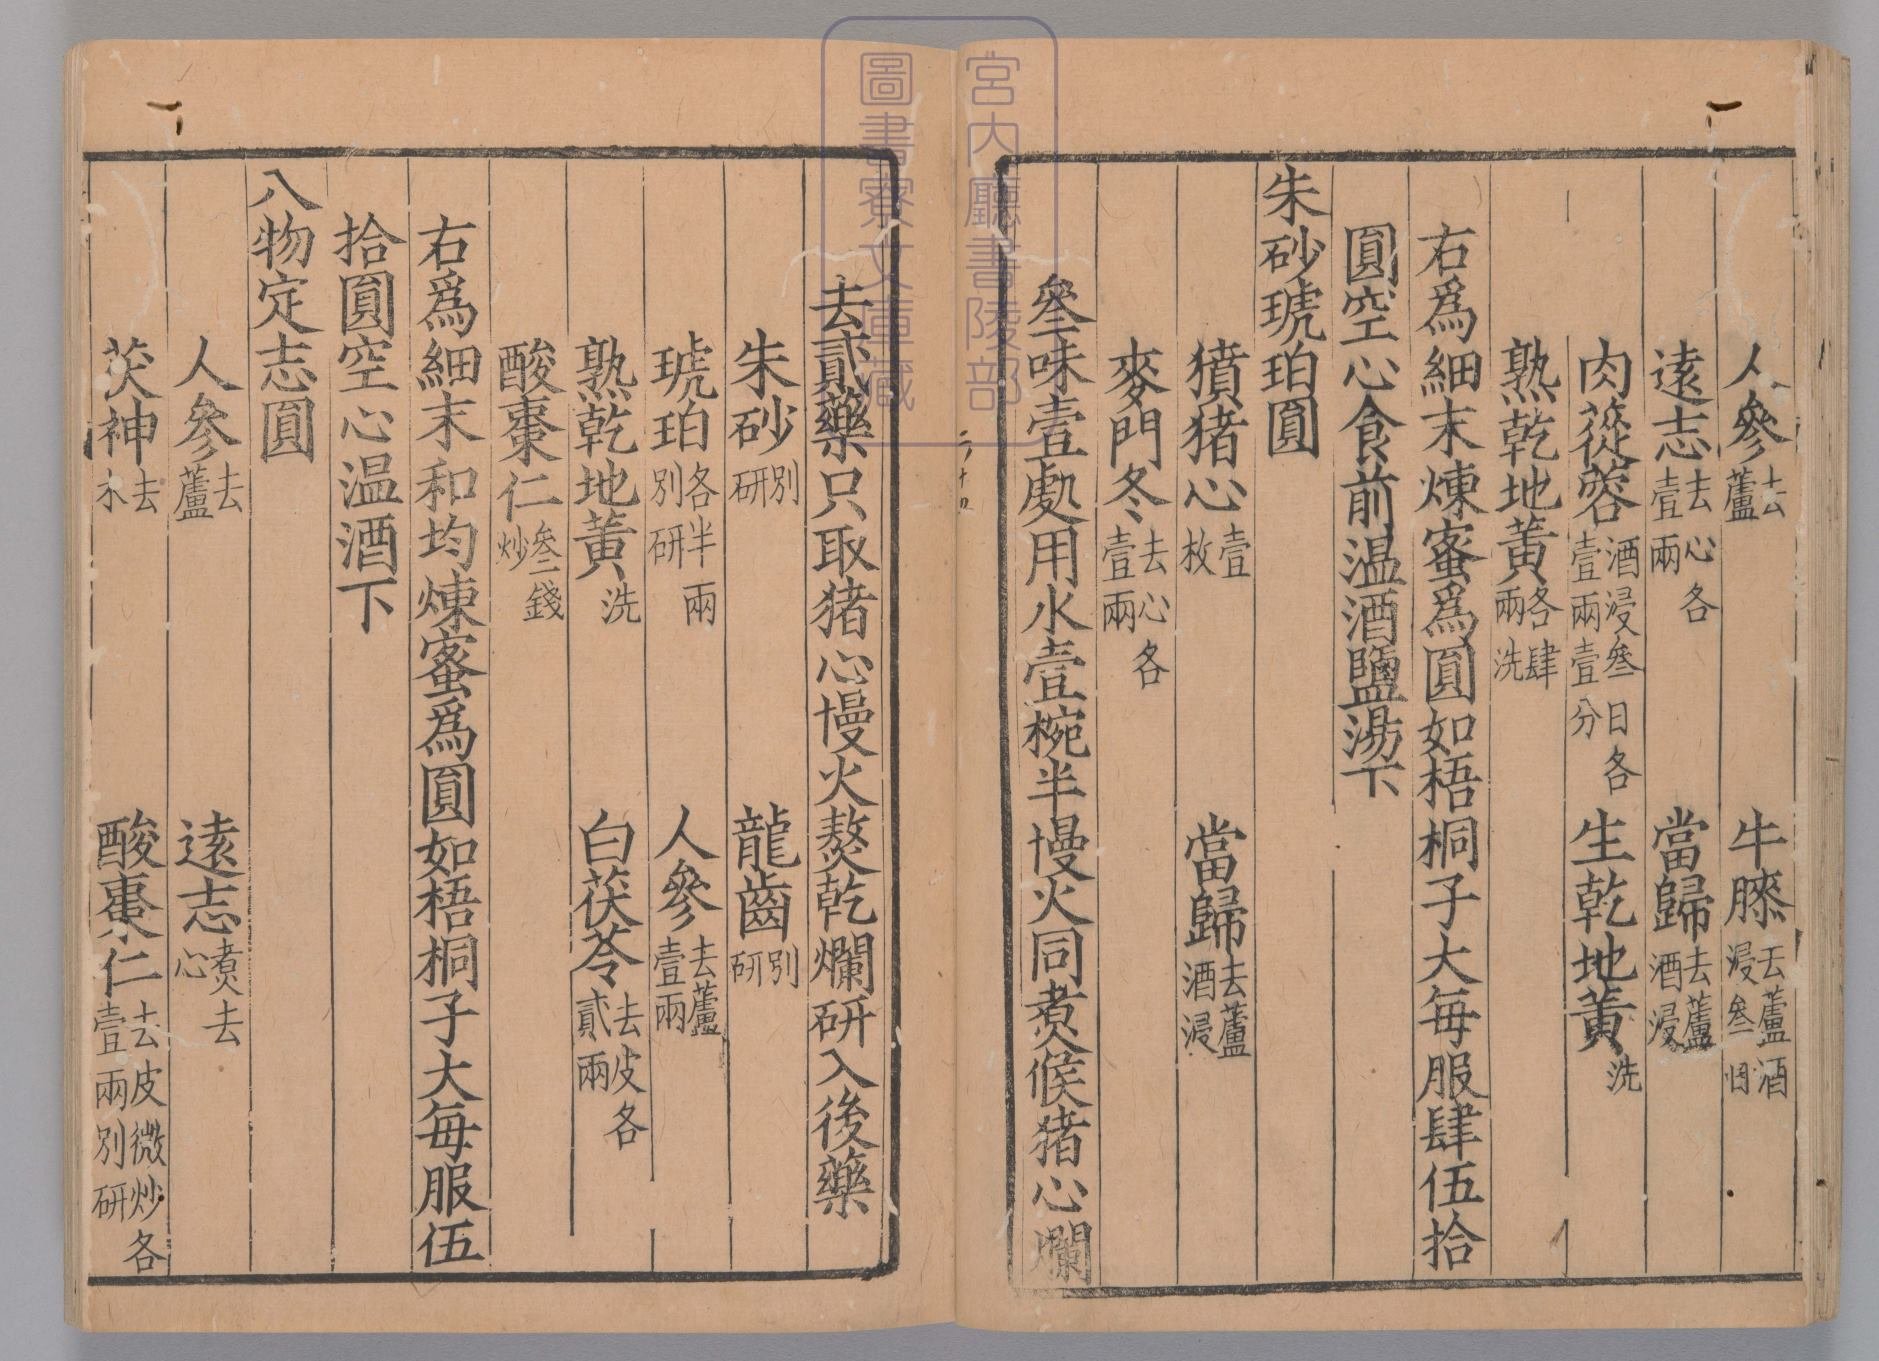 人參去蘆 牛膝去蘆酒浸叁日
遠志去心各壹兩 當歸去蘆酒浸
肉蓯蓉酒浸叁日各壹兩壹分 生乾地黃洗
熟乾地黃各肆兩洗
右爲細末煉蜜爲圓如梧桐子大每服肆伍拾
圓空心食前温酒鹽湯下
朱砂琥珀圓
獖猪心壹枚 當歸去蘆酒浸
麥門冬去心各壹兩
叁味壹處用水壹椀半慢火同煑候猪心爛
去貳藥只取猪心慢火熬乾爛研入後藥
朱砂別研 龍齒別研
琥珀各半兩別研 人參去蘆壹兩
熟乾地黃洗 白茯苓去皮各貳兩
酸棗仁叁錢炒
右爲細末和均煉蜜爲圓如梧桐子大每服伍
拾圓空心温酒下
八物定志圓
人參去蘆 遠志煑去心
茯神去木 酸棗仁去皮微炒各壹兩別研
宮内廳書陵部
圖書寮文庫藏